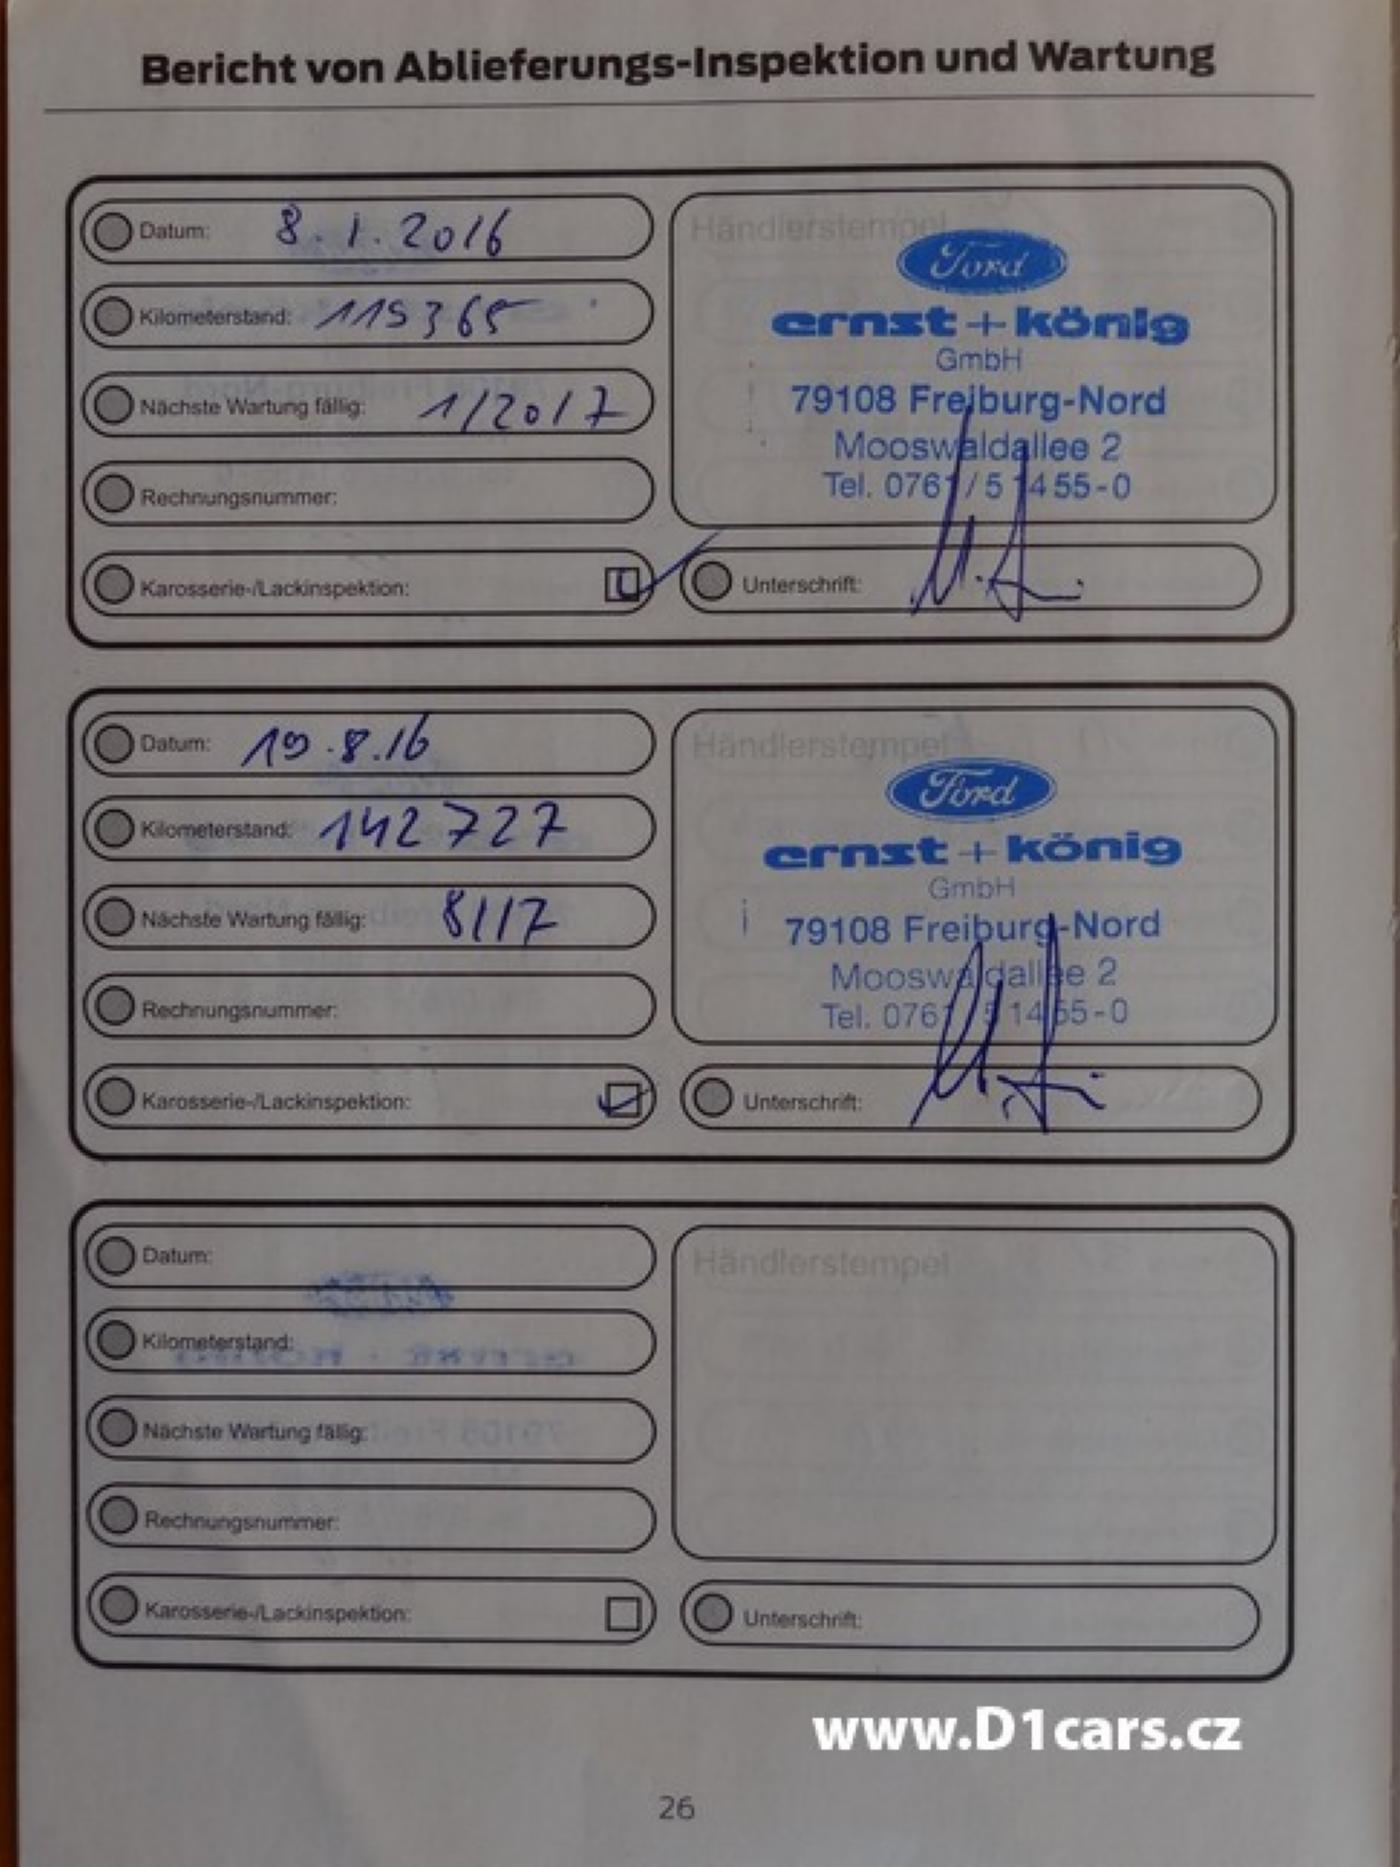 Bericht von Ablieferungs-Inspektion und Wartung
Datum: 8.1.2016
Kilometerstand: 119365
Nächste Wartung fällig: 1/2017
Rechnungsnummer:
Karosserie-/Lackinspektion:
Händlerstempel
Ford
ernst + könig
GmbH
79108 Freiburg-Nord
Mooswaldallee 2
Tel. 0761/51455-0
Unterschrift:
Datum: 19.8.16
Kilometerstand: 142727
Nächste Wartung fällig: 8/17
Rechnungsnummer:
Karosserie-/Lackinspektion:
Händlerstempel
Ford
ernst + könig
GmbH
79108 Freiburg-Nord
Mooswaldallee 2
Tel. 0761/51455-0
Unterschrift:
Datum:
Kilometerstand:
Nächste Wartung fällig:
Rechnungsnummer:
Karosserie-/Lackinspektion:
Händlerstempel
Unterschrift:
www.D1cars.cz
26